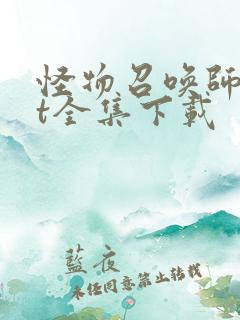 怪物召唤师t
t全集下载
藍夜
未经同意禁止转载